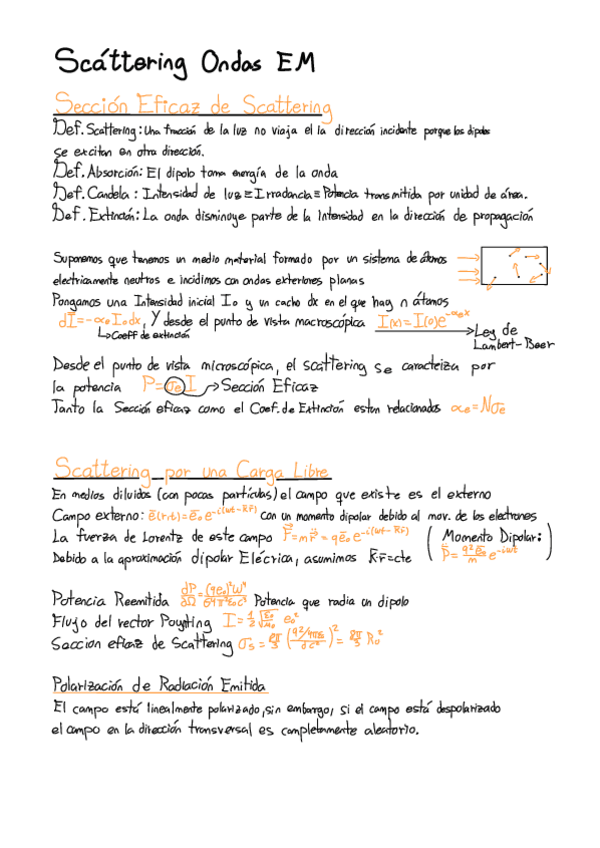 Scáttering Ondas EM
Sección Eficaz de Scattering
Def. Scattering: Una fracción de la luz no viaja el la dirección incidente porque los dipolos
se excitan en otra dirección.
Def. Absorción: El dipolo toma energía de la onda
Def. Candela: Intensidad de luz ≡ Irradancia ≡ Potencia transmitida por unidad de área.
Def. Extinción: La onda disminuye parte de la Intensidad en la dirección de propagación
Suponemos que tenemos un medio material formado por un sistema de átomos
electricamente neutros e incidimos con ondas exteriores planas
Pongamos una Intensidad inicial I₀ y un cacho dx en el que hay n átomos
dI = -αe I₀ dx, Y desde el punto de vista macroscópica I(x) = I(0)e^-αex
Coeff de extinción
Ley de
Lambert-Beer
Desde el punto de vista microscópica, el scattering se caracteiza por
la potencia P = σe I Sección Eficaz
Tanto la Sección eficaz como el Coef. de Extinción estan relacionados αe = Nσe
Scattering por una Carga Libre
En medios diluidos (con pocas partículas) el campo que existe es el externo
Campo externo: e(r,t) = e₀ e^-i(wt-kr) con un momento dipolar debido al mov. de los electrones
La fuerza de Lorentz de este campo F = m r̈ = q e₀ e^-i(wt-kr) (Momento Dipolar:
p̈ = q² e₀/m e^-iwt)
Debido a la aproximación dipolar Elécrica, asumimos k·r = cte
Potencia Reemitida dP/dΩ = Potencia que radia un dipolo
Flujo del vector Poynting I = 1/2 √(ε₀/μ₀) e₀²
Seccion eficaz de Scattering σs = 8π/3 = 8π/3 R₀²
Polarización de Radiación Emitida
El campo está linealmente polarizado, sin embargo, si el campo está despolarizado
el campo en la dirección transversal es completamente aleatorio.